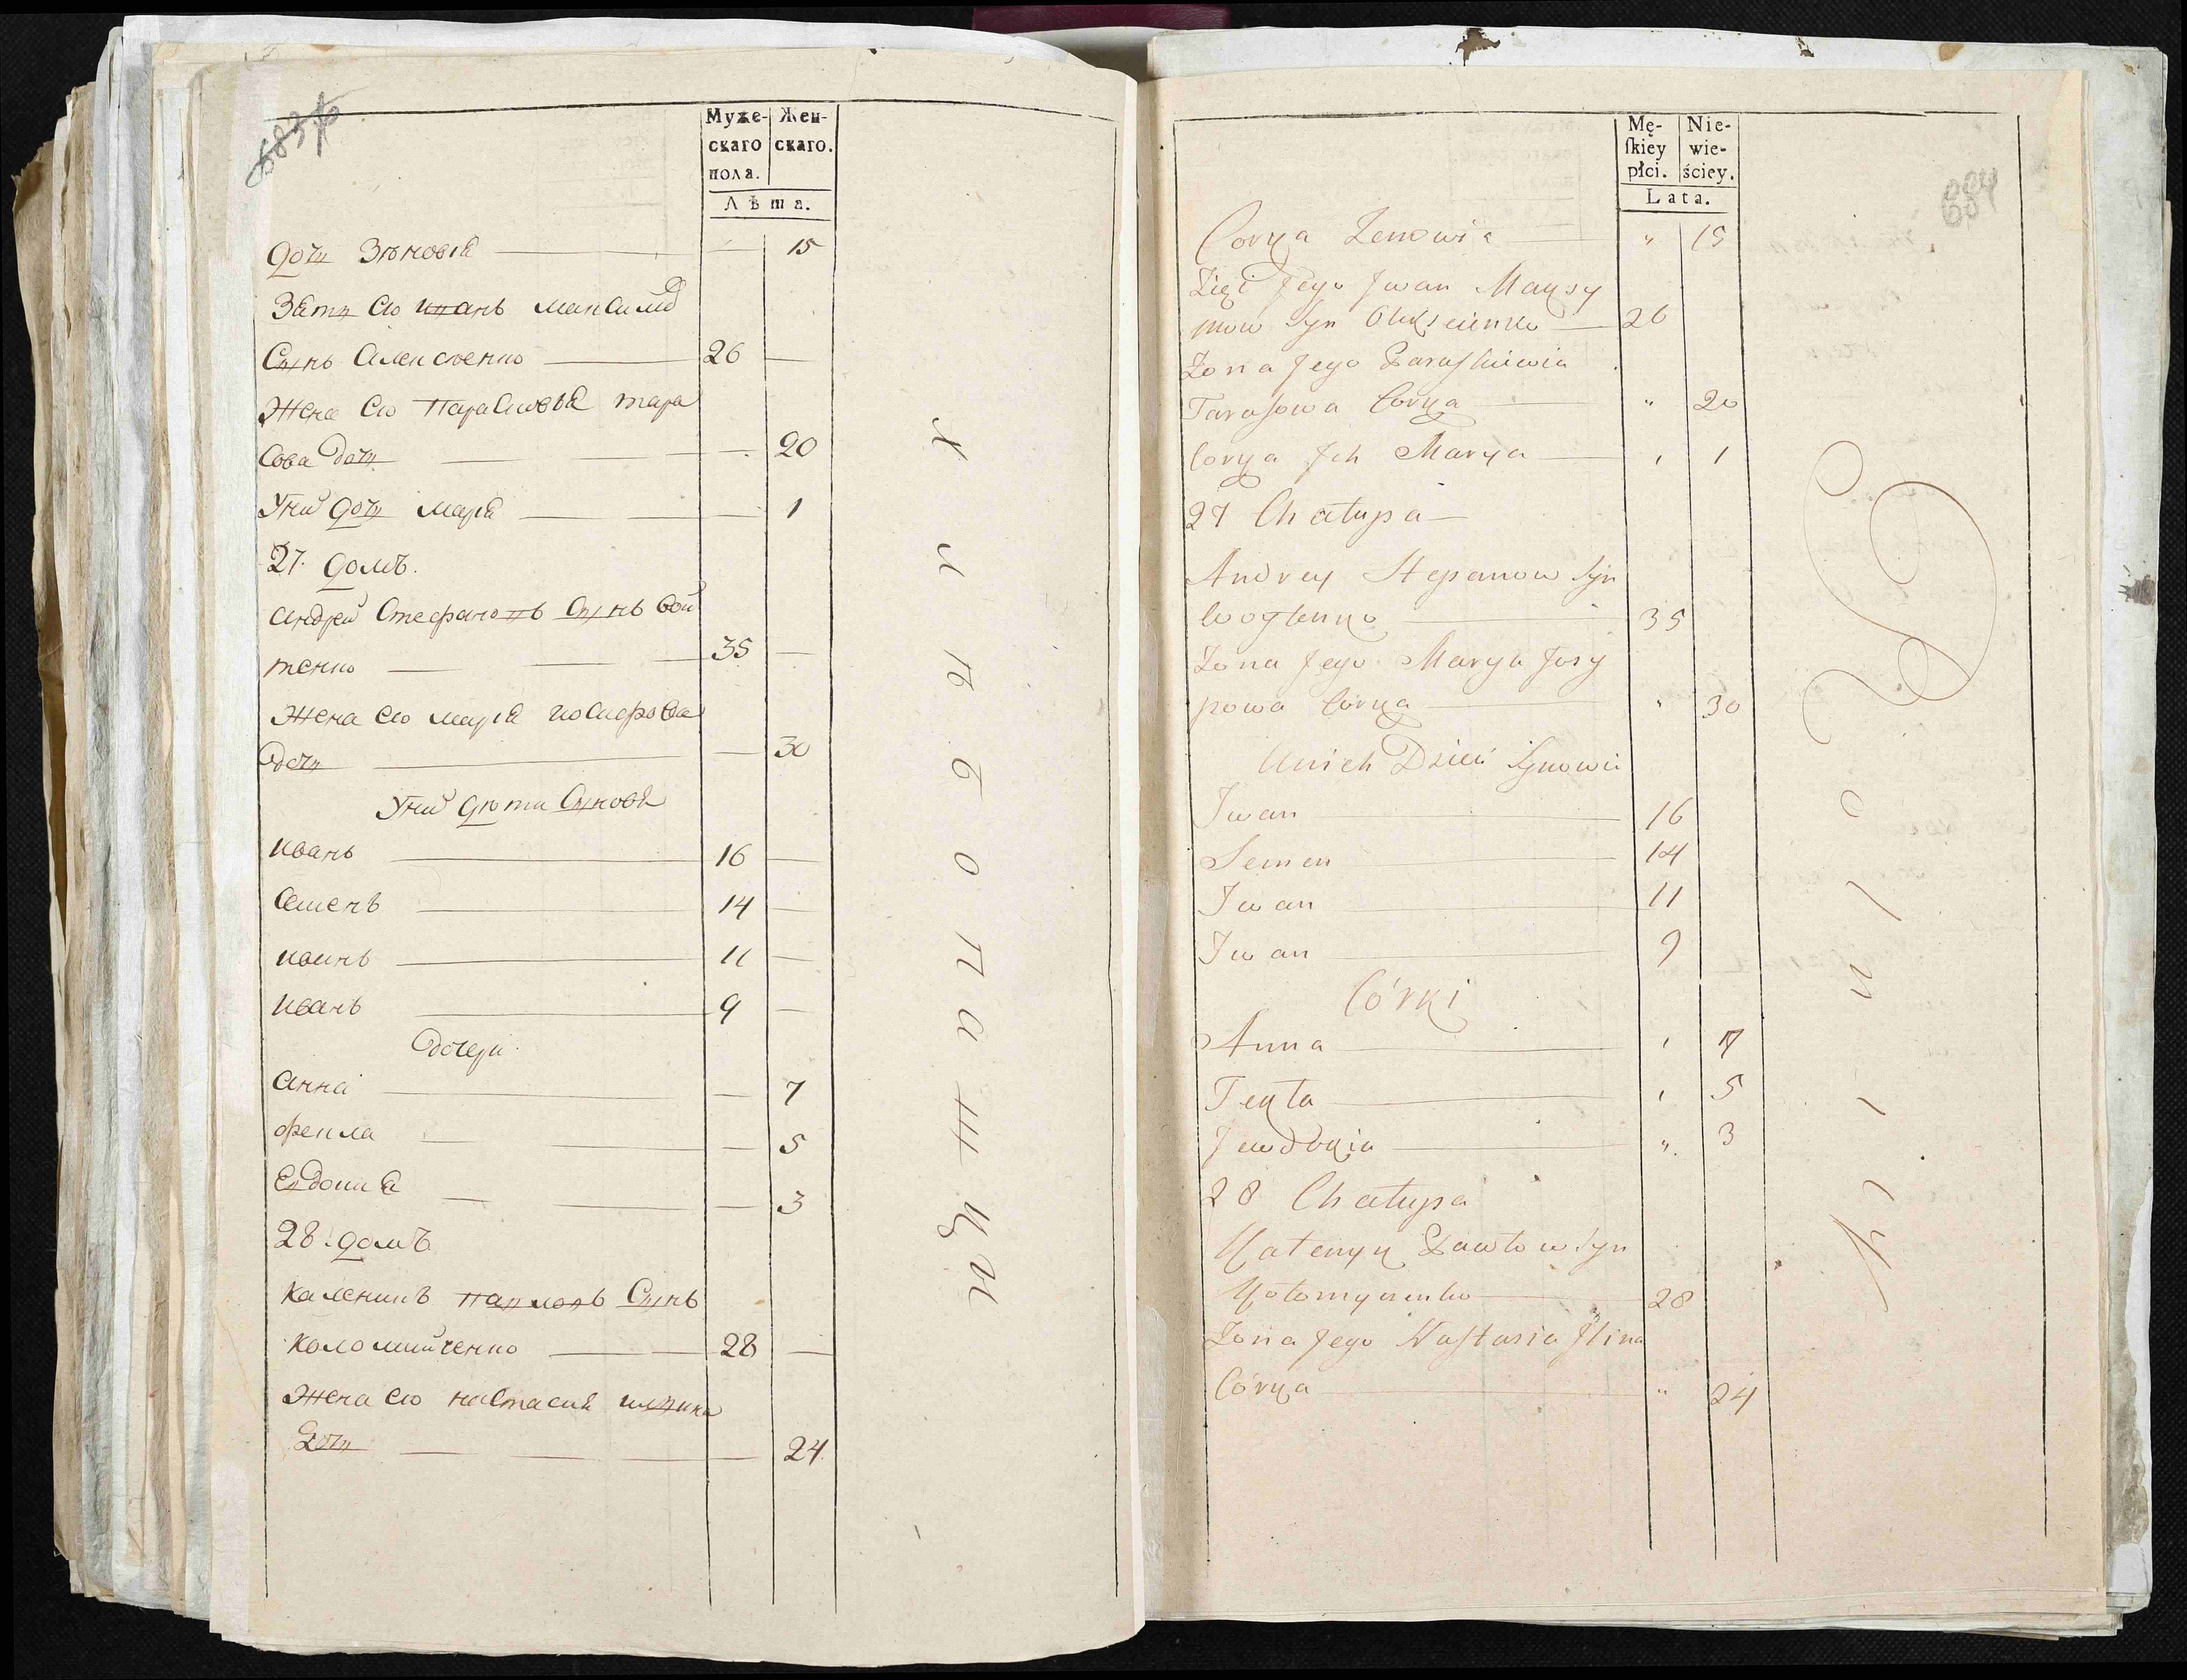 683
Муже-
скаго
пола.
Жен-
скаго.
Лѣта.
дочь Зѣновія — 15
Зять его иванъ максимо
Сынъ Алексѣенко — 26 —
Жена его Парасковія тара
сова дочь — — 20
Уних дочь марія — — 1
27. домъ.
андрей Стефановъ Сынъ вой
тенко — 35 —
Жена его марія иосифова
дочь — — 30
Уних дѣти Сыновя
иванъ — 16 —
Семенъ — 14 —
иванъ — 11 —
иванъ — 9 —
дочери
анна — — 7
фекла — — 5
Евдокия — — 3
28. домъ
каленикъ павловъ Сынъ
коломийченко — 28 —
Жена его настасия
дочь — — 24
684
Mę-
ſkiey
płci.
Nie-
wie-
ściey.
Lata.
Corka Zenowia — " 15
Zięć Jego Jwan Maksy
mow Syn Olekseienko — 26
Zona Jego Paraſkiewia
Taraſowa Corka — " 20
Corka Jch Marya — " 1
27 Chałupa —
Andrey Stepanow Syn
Woytenko — 35
Zona Jego Marya Josy
powa Corka — " 30
Unich Dzieci Synowie
Jwan — 16
Semen — 14
Jwan — 11
Jwan — 9
Córki
Anna — " 7
Tekla — " 5
Jewdokia — " 3
28 Chałupa
Kalenyk Pawłow Syn
Kołomyicenko — 28
Zona Jego Naſtasia Jlina
Córka — " 24